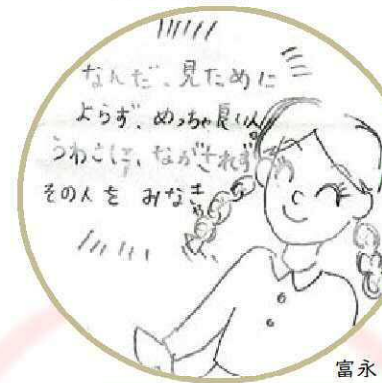 なんだ、見ために
よらず、めっちゃ良い人
うわさに、ながされず
その人を みなきゃ
富永